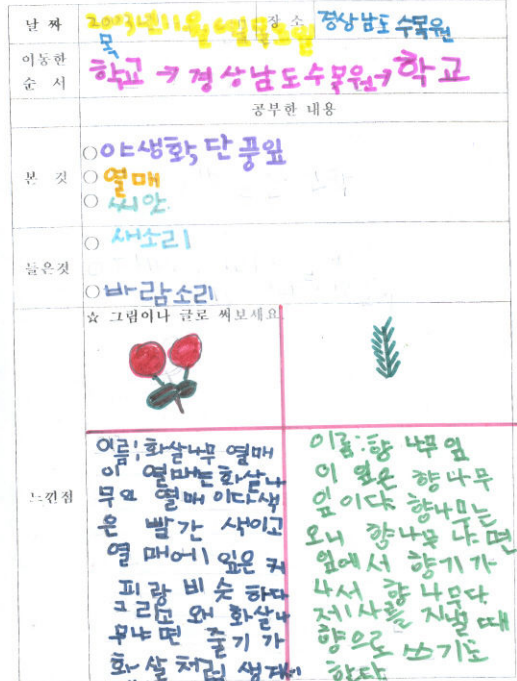 날 짜 2023년 11월 일 목요일 장 소 경상남도 수목원
목
이동한 순 서 학교 → 경상남도수목원 → 학교
공부한 내용
본 것 ○ 야생화, 단풍잎
○ 열매
○ 씨앗
들은것 ○ 새소리
○ 바람소리
☆ 그림이나 글로 써보세요
느낀점
이름: 화살나무 열매
이 열매는 화살나
무의 열매이다 색
은 빨간 색이고
열매에 잎은 커
피랑 비슷 하다
그리고 왜 화살나
무냐면 줄기가
화살처럼 생겨
이름: 향 나무 잎
이 잎은 향나무
잎이다. 향나무는
왜 향나무 냐면
잎에서 향기가
나서 향 나무다
제사를 지낼 때
향으로 쓰기도
한다